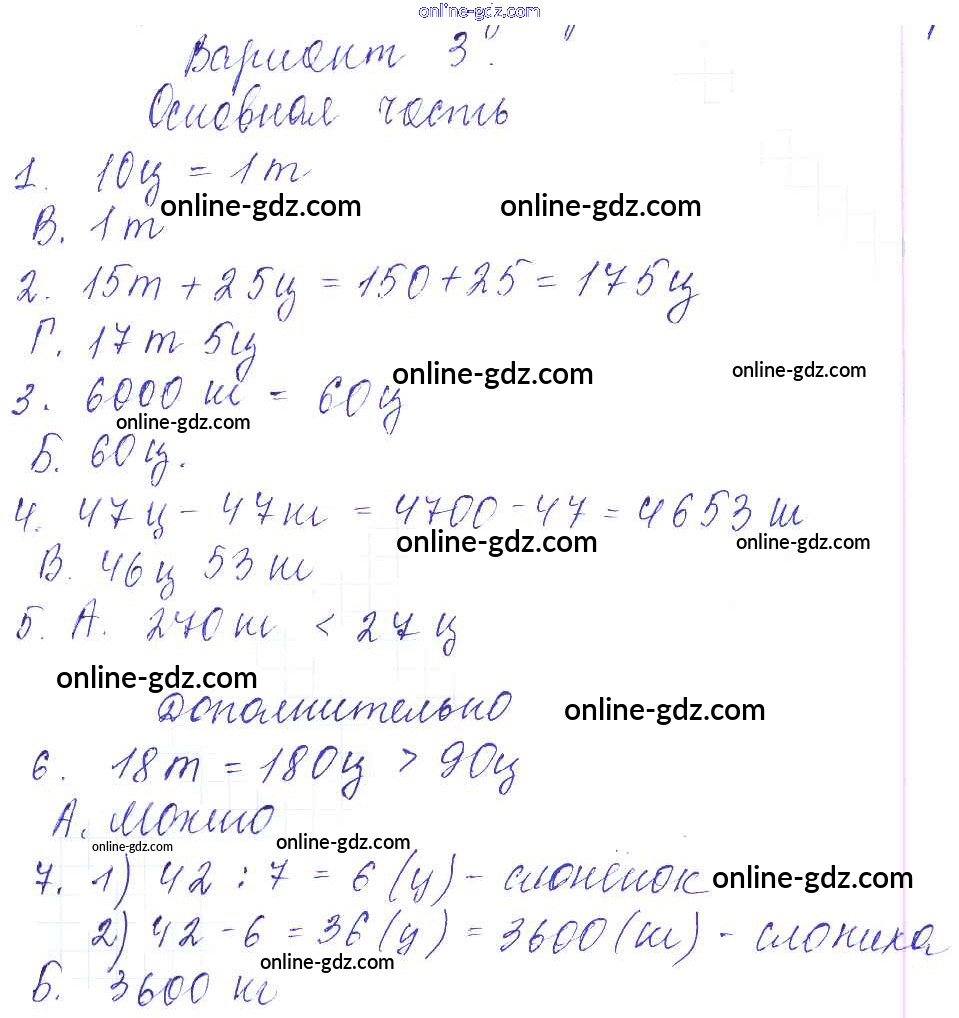 online-gdz.com
Вариант 3.
Основная часть
1. 10ц = 1т
online-gdz.com online-gdz.com
В. 1т
2. 15т + 25ц = 150 + 25 = 175ц
Г. 17т 5ц
online-gdz.com online-gdz.com
3. 6000 кг = 60ц
online-gdz.com
Б. 60ц.
4. 47ц - 47кг = 4700 - 47 = 4653 кг
online-gdz.com online-gdz.com
В. 46ц 53 кг
5. А. 270кг < 27ц
online-gdz.com
Дополнительно online-gdz.com
6. 18т = 180ц > 90ц
А. Можно
online-gdz.com online-gdz.com
7. 1) 42 : 7 = 6 (ц) - слонёнок online-gdz.com
2) 42 - 6 = 36 (ц) = 3600 (кг) - слониха
online-gdz.com
Б. 3600 кг